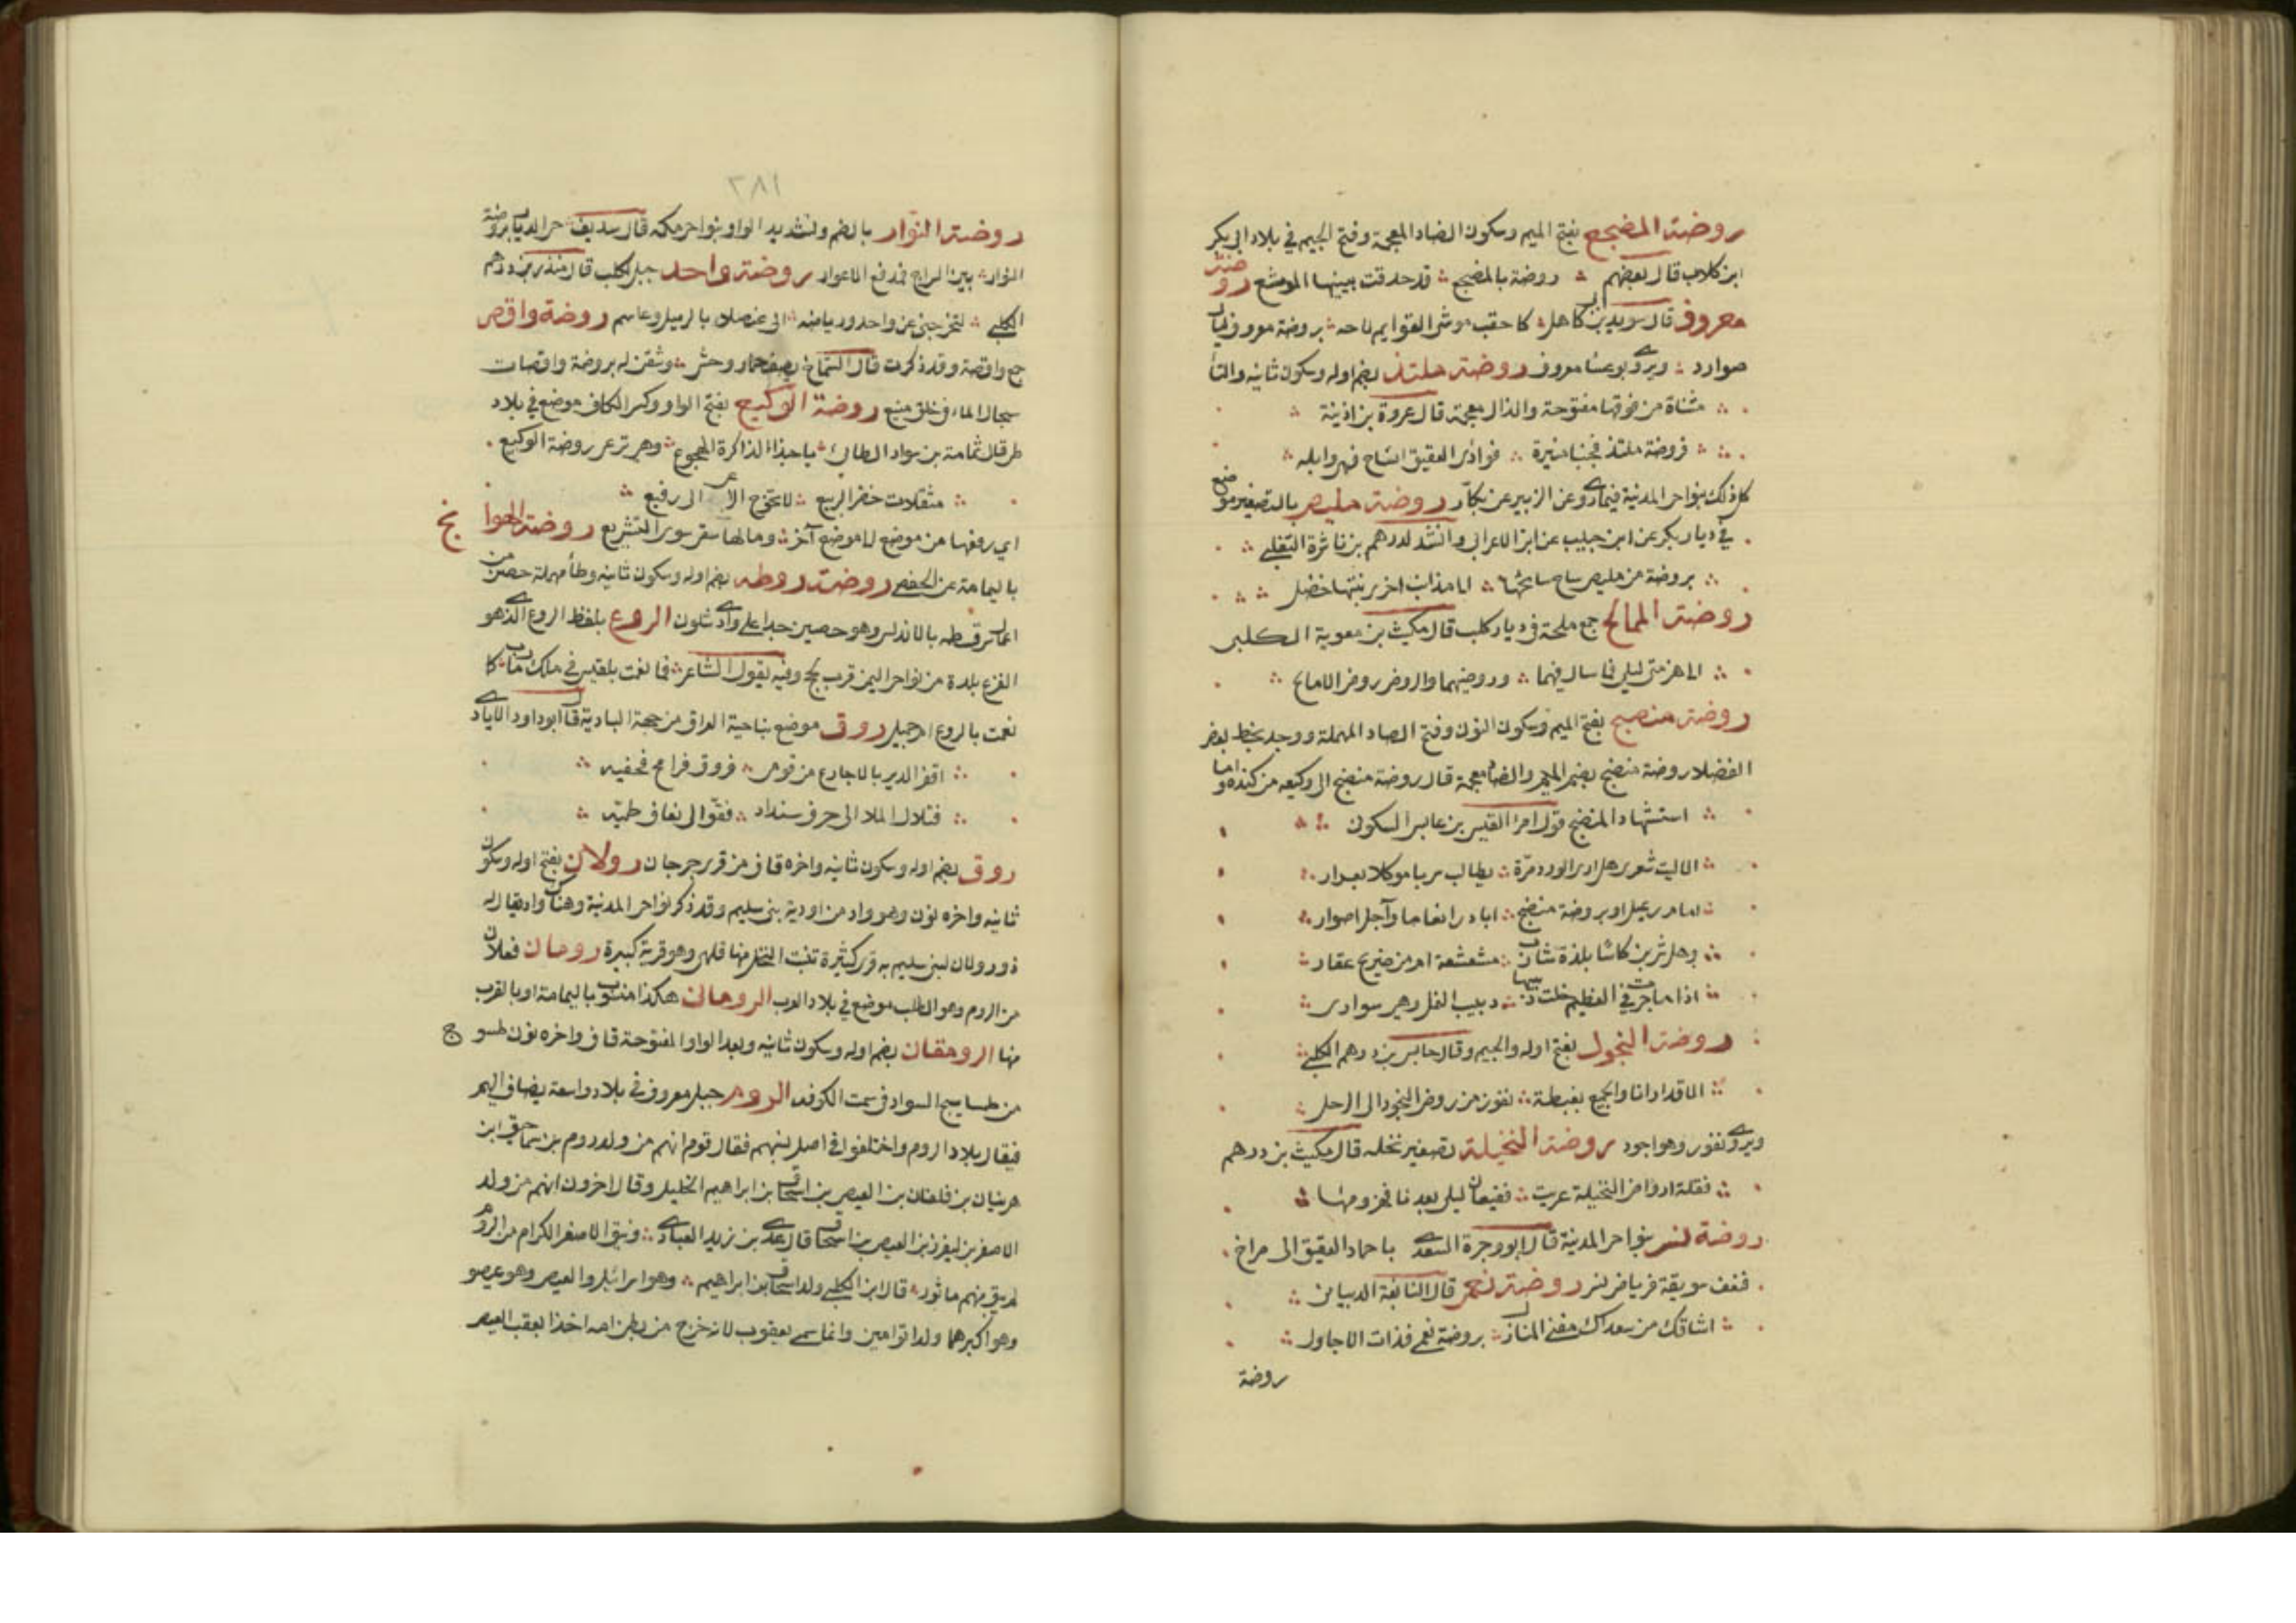 روضة المضجع بفتح الميم وسكون الضاد المعجمة وفتح الجيم في بلاد ابي بكر
ابن كلاب قال بعضهم روضة بالمضجع قد حدقت بينها الموشع روضة
معروف قال سويد بن ابي كاهل كاحقب موشى القوايم لاحه بروضة معروف ليال
صوارد ويروى بوعسا معروف روضة ملتذ بضم اوله وسكون ثانيه والتا
مثناة من فوقها مفتوحة والذال معجمة قال عروة بن اذينة
فروضة ملتذ فجنبا منيرة فوادى العقيق انساح فيهن وابله
كل ذلك بنواحي المدينة فيما روى عن الزبير عن بكار روضة مليص بالتصغير موضع
في ديار بكر عن ابن حبيب عن ابن الاعرابي وانشد لدرهم بن ناثرة التغلبي
بروضة من مليص ساح سائحها
روضة الممالح جمع ملحة في ديار كلب قال مكيث بن معوية الكلبي
الى هزمتي ليلى فما سال فيهما وروضيهما والروض روض الممالح
روضة منصح بفتح الميم وسكون النون وفتح الصاد المهملة ووجد بخط بعض
الفضلا روضة منضح بضم الميم والضاد معجمة قال روضة منضح الى وكيعه من كندة واما
استشهاد المنضح قول امرا القيس بن عابس السكون
الا ليت شعري هل ارى الورد مرة يطالب سربا موكلا بعرار
امام رعيل او بروضة منضح ابادر انعاما وآجل اصوار
وهل اشربن كاسا بلذة شارب مشعشعة او من صريح عقار
اذا ما جرت في العظم خلت دبيبها دبيب النمل وهي سوارى
روضة النجول بفتح اوله والجيم وقال حابس بن درهم الكلبي
الا قد ارانا والجميع بغبطة نفوز من روض النجود الى الرحل
ويروى نغور وهو اجود روضة النخيلة تصغير نخله قال مكيث بن درهم
فقلة ارواض النخيلة عريت فقيعان ليلى بعدنا فهزومها
روضة نسر بنواحي المدينة قال ابو وجزة السعدي باجماد العقيق الى مراخ
فنعف سويقة فرياض نسر روضة نعمى قال النابغة الذبياني
اشاقك من سعداك مغنى المنازل بروضة نعمى فذات الاجاول
روضة
٣٨١
روضة النوّار بالضم وتشديد الواو بنواحي مكه قال سديف حى الديار بروضة
النوار بين السراج فمدفع الاعوار روضة واحد جبل لكلب قال منذر بن درهم
الكلبي لتخرجني عن واحد ورياضه الى عنصلاء بالزميل وعاسم روضة واقص
جمع واقصة وقد ذكرت قال الشماخ يصف حمار وحش وسقن له بروضة واقصات
سجال الماء في حلق منيع روضة الوكيع بفتح الواو وكسر الكاف موضع في بلاد
طي قال ثمامة بن سواد الطائي يا حبذا لذاذة الهجوع وهي ترعى روضة الوكيع
مثقلات خضر الربيع لا تحوج الراعي الى رفيع
اي رفعها من موضع لموضع آخر وما لها سقى سوى التشريع روضة الحوا ئج
باليمامة عن الحفصي روضة روطه بضم اوله وسكون ثانيه وطأ مهملة حصن من
اعمال سرقسطه بالاندلس وهو حصين جدا على وادي شلون الروع بلفظ الروع الذي هو
الفزع بلدة من نواحي اليمن قرب لحج وفيه يقول الشاعر فما نعمت بلقيس في ملك مارب كما
نعمت بالروع ام جميل روق موضع بناحية العراق من جهة البادية قال ابو داود الايادي
اقفر الدير بالاجارع من قومي فروق فرامح فخفيه
فتلال الملا الى جرف سنداد فقو الى نعاف طميه
روق بضم اوله وسكون ثانيه واخره قاف من قرى جرجان رولان بفتح اوله وسكون
ثانيه واخره نون وهو واد من اودية بني سليم وقد ذكر نواحي المدينة وهناك واد يقال له
ذو رولان لبني سليم به قرى كثيرة تنبت النخل منها قلهى وهو قرية كبيرة رومان فعلان
من الروم وهو الطلب موضع في بلاد العرب الروماني هكذا منسوب باليمامة او بالقرب
منها الرومقان بضم اوله وسكون ثانيه وبعد الواو المفتوحة قاف واخره نون طسو ج
من طساسيج السواد في سمت الكوفة الروم جيل معروف في بلاد واسعة يضاف اليهم
فيقال بلاد الروم واختلفوا في اصل نسبهم فقال قوم انهم من ولد روم بن سماحيق ابن
هرينان بن فلغان بن العيص بن اسحاق بن ابراهيم الخليل وقال اخرون انهم من ولد
الاصفر بن ليفرز بن العيص بن اسحاق قال عدي بن زيد العبادي وبنو الاصفر الكرام من الروم
لم يبق منهم ماثور قال ابن الكلبي ولد اسحاق بن ابراهيم وهو اسرائيل والعيص وهو عيصو
وهو اكبرهما ولدا توامين وانما سمي يعقوب لانه خرج من بطن امه اخذا بعقب العيص